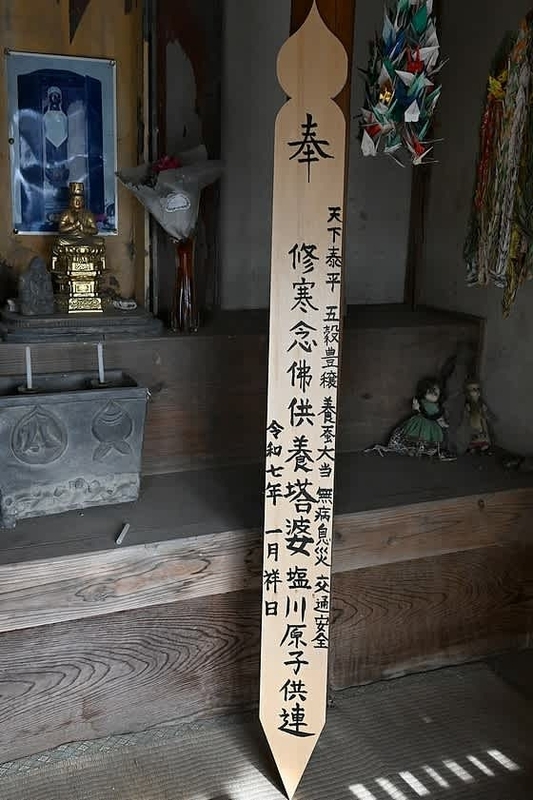 奉
天下泰平 五穀豊穣 養蚕大当 無病息災 交通安全
修寒念佛供養塔婆 塩川原子供連
令和七年 一月祥日